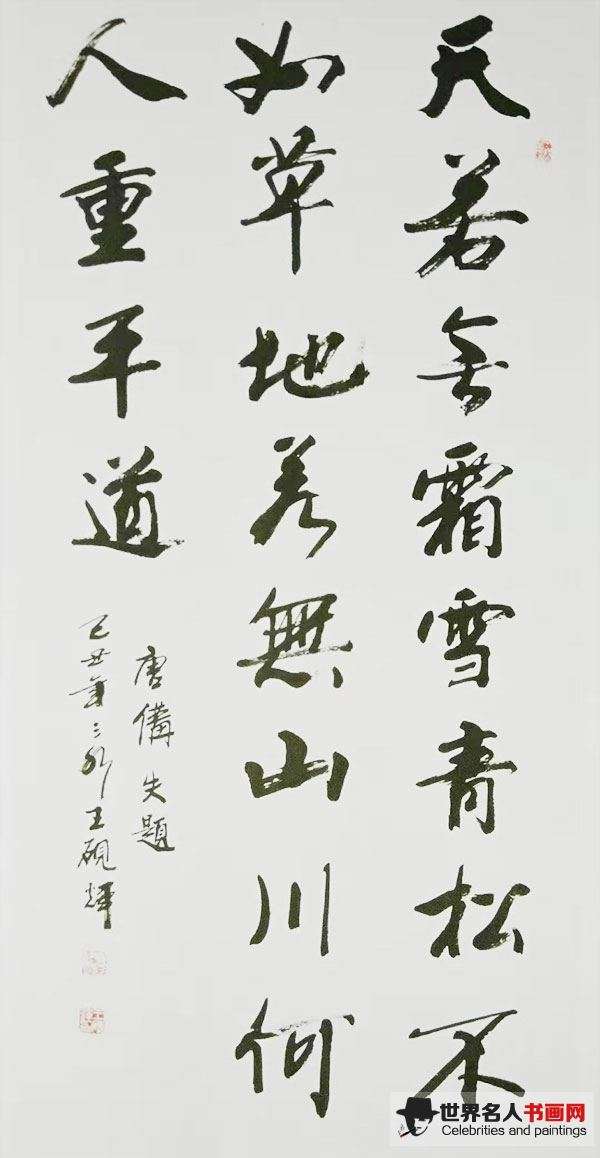 天若無霜雪青松不
如草地若無山川何
人重平道
唐備失題
己丑年 王硯輝
世界名人书画网
Celebrities and paintings